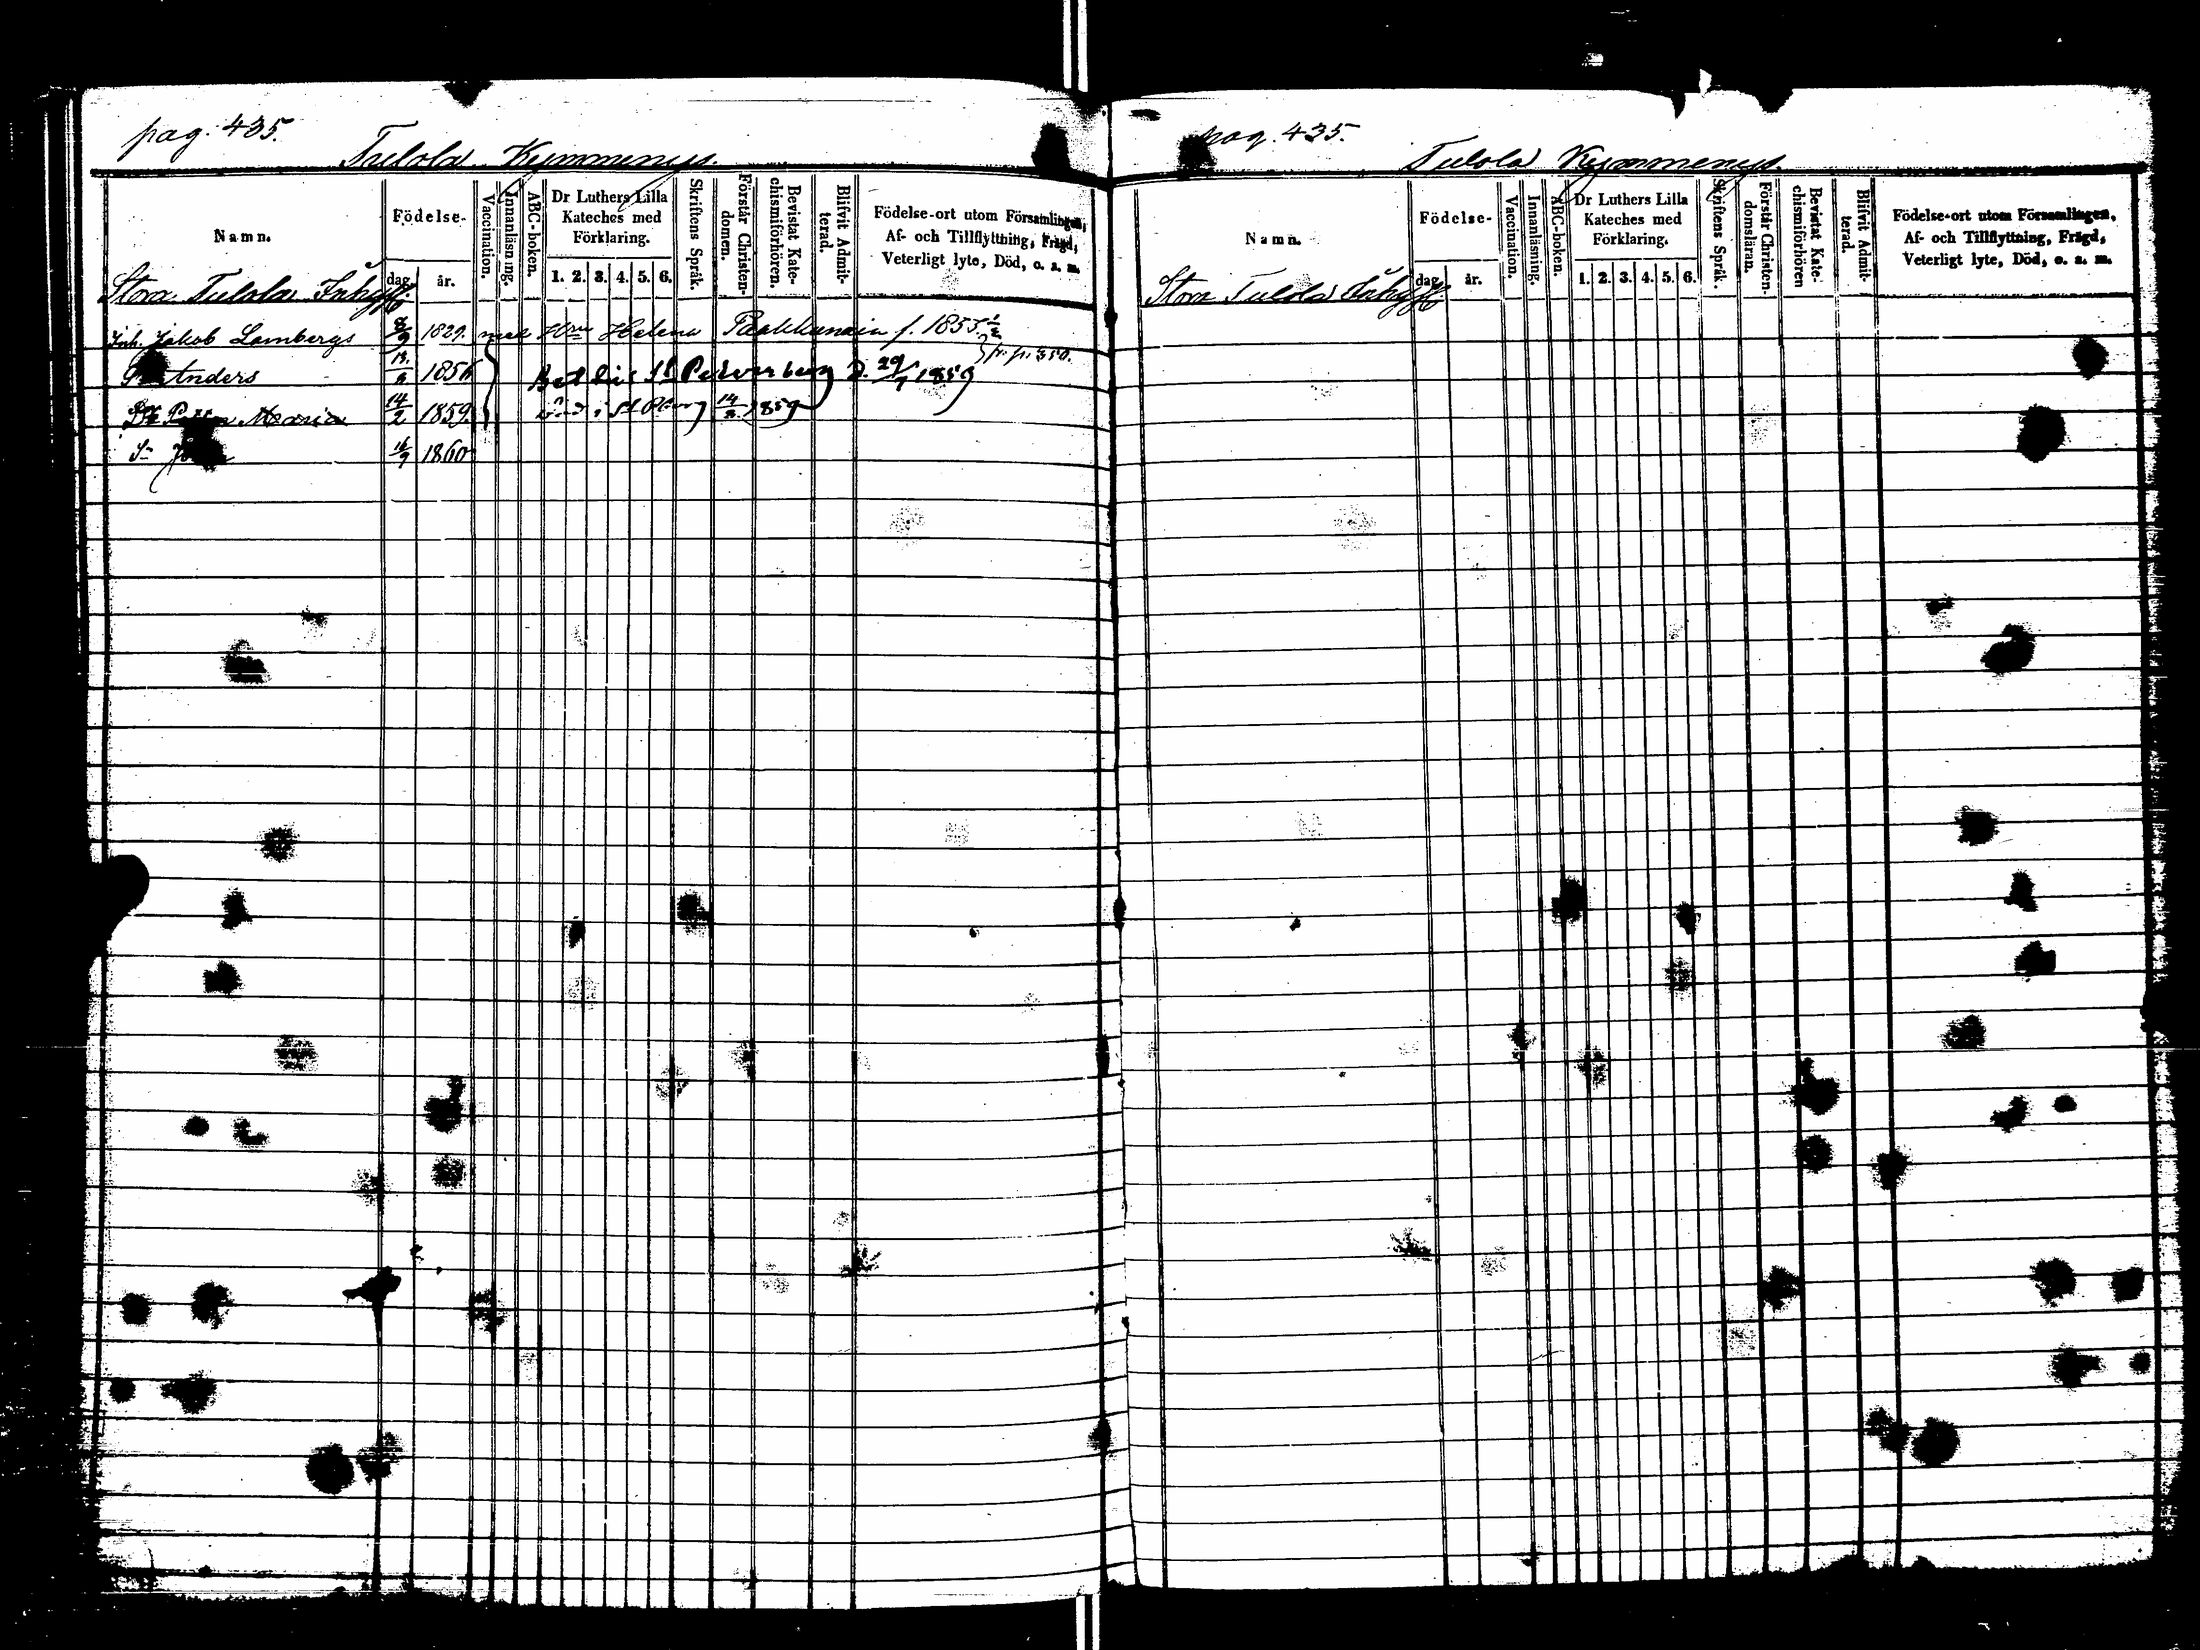 pag. 435.
Tulola Kymmenys.
Namn.
Födelse-
dag.
år.
Vaccination.
Innanläsning.
ABC-boken.
Dr Luthers Lilla
Kateches med
Förklaring.
1. 2. 3. 4. 5. 6.
Skriftens Språk.
Förstår Christen-
domen.
Bevistat Kate-
chismiförhören.
Blifvit Admit-
terad.
Födelse-ort utom Församlingen,
Af- och Tillflyttning, Frägd,
Veterligt lyte, Död, o. s. m.
Stora Tulola
Inh. Jakob Lambergs 1829. med Helena f. 1855.
Anders 1856 St Petersburg D. 29/7 1859
Maria 14/2 1859. i St Pburg 1859
Sn 1860
pag. 435.
Tulola Kymmenys.
Namn.
Födelse-
dag.
år.
Vaccination.
Innanläsning.
ABC-boken.
Dr Luthers Lilla
Kateches med
Förklaring.
1. 2. 3. 4. 5. 6.
Skriftens Språk.
Förstår Christen-
domsläran.
Bevistat Kate-
chismiförhören
Blifvit Admit-
terad.
Födelse-ort utom Församlingen,
Af- och Tillflyttning, Frägd,
Veterligt lyte, Död, o. s. m.
Stora Tulola